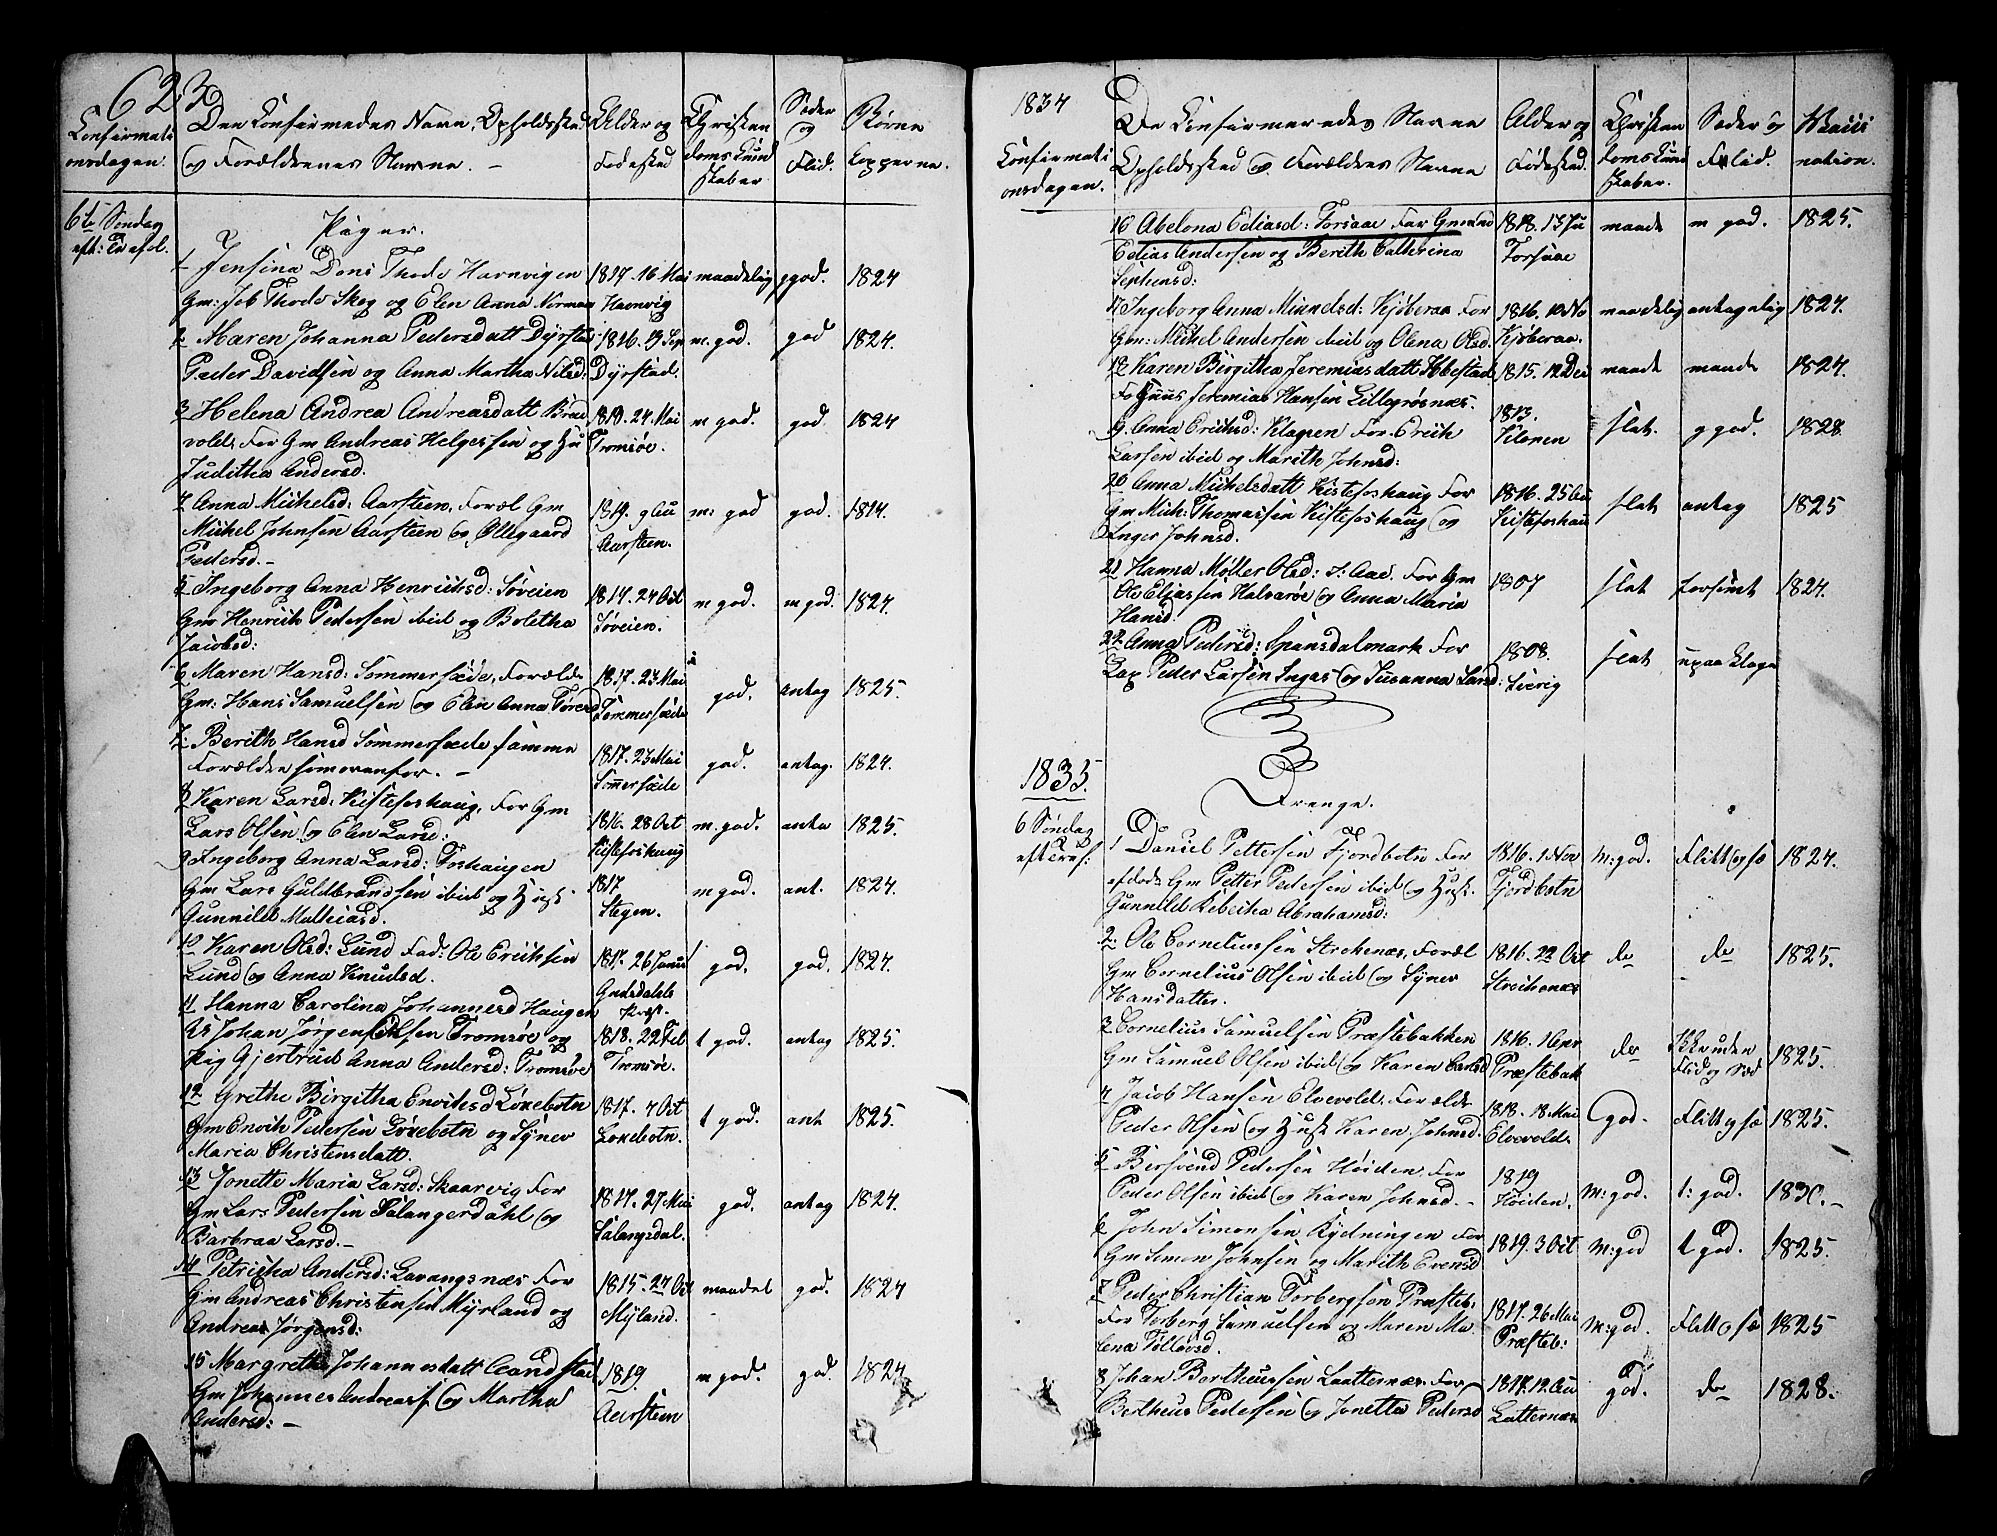 623
Confirmati
onsdagen.
Den Confirmedes Navn, Opholdssted
og Forældrenes Navne. –
Alder og
Fødested
Christen
doms Kund
skaber
Sæder
og
Flid.
Børne
kopperne.
6te Søndag
eft: Trefol.
Piger.
1 Jensina Dons Thode Havnvigen
Gm: Job Thode Skog og Elen Anna Norman
1817. 16 Mai
Havnvig
maadelig
g god.
1824
2 Maren Johanna Pedersdatt Dyrstad
Peder Davidsen og Anna Martha Nilsd:
1816. 19 Sep
Dyrstad.
m. god.
god
1824.
3 Helena Andrea Andreasdatt Brae
vold. For Gm Andreas Helgessen og Hu
Juditha Andersd.
1819. 24 Mai
Tromsøe.
m god.
god.
1824
4 Anna Michelsd: Aarsteen, Foræl Gm
Michel Johnsen Aarsteen og Ollegaard
Pedersd. –
1819. 9 Au
Aarsteen.
m: god
god.
1814.
5 Ingeborg Anna Henrichsd: Søveien
Gm Henrich Pedersen ibid og Boletha
Jacobsd:
1817. 24 Oct
Søveien.
m god.
m god.
1824.
6 Maren Hansd: Sommersæde, Foræld
Gm: Hans Samuelsen og Elen Anna Torersd
1817. 23 Mai
Sommersæde
god.
antag
1825.
7. Berith Hansd Sommersæde samme
Forælde somovenfor. –
1817. 23 Mai
Somersæde
god.
antag.
1824.
8 Karen Larsd: Kistefoshaug, For Gm
Lars Olsen og Elen Larsd:
1816. 28 Oct
Kistefoshaug
m. god.
anta
1825.
9 Ingeborg Anna Larsd: Foshaugen
Gm Lars Guldbrandsen ibid og Hust
Gunnild Mathiasd.
1817
Stegen.
m god.
ant.
1824.
10 Karen Olsd: Lund Fad: Ole Erichsen
Lund og Anna Knudsd.
1817. 26 Janu
Gudsdahls
Præst.
god.
god.
1824.
11 Hanna Carolina Johannesd Haugen
Us Johan Jørgen Olsen Tromsøe og
Pig Gjertrud Anna Andersd: Tromsøe
1818. 22 Feb
Tromsøe.
t god.
antag
1825.
12 Grethe Birgitha Enoichsd Loxebotn
Gm Enoch Pedersen Loxebotn og Synev
Maria Christensdatt.
1817. 4 Oct
Loxebotn.
t god.
ant
1825.
13 Jonette Maria Larsd: Skaarvig For
Gm Lars Pedersen Salangerdahl og
Barbraa Larsd. –
1817. 27 Mai
Salangsdal.
god.
antag
1824.
14 Petricka Andersd: Lavangsnæs For
Gm Andreas Christensen Myrland og
Andrea Jørgensd:
1815. 24 Oct
Myland.
maadel
god.
1824
15 Margreth Johannesdatt Aandstad
Gm Johannes Andreass. og Martha
Andersd: –
1819.
Aarsteen
m god.
god.
1824
1834
Confirmati
onsdagen.
De Confirmeredes Navne
Opholdssted og Forældres Navne
Alder og
Fødested.
Christen
doms Kund
skaber.
Sæder og
Flid.
Vacci
nation.
16 Abelona Eliasd: Forsaae For Gm
Elias Andersen og Berith Cathrina
Sephensd:
1818. 13 Ju
Forsaae
maade
m god.
1825.
17 Ingeborg Anna Michelsd: Kjøberaa For
Gm: Michel Andersen ibid og Olena Olsd.
1816. 10 No
Kjøberaa.
maadelig
antagelig
1824.
18 Karen Birgitha Jeremiasdatt Ibbestad
Fo Huus Jeremias Hansen Lillegrøsnæs.
1815. 12 Dec
maade
maade
1824.
19. Anna Erichsd: Klagsen For. Erich
Larsen ibid og Marith Johnsd:
1813.
Kloven
slat.
g god.
1828.
20 Anna Michelsdatt Kistefoshaug For
Gm Mich: Thomassen Kistefoshaug og
Inger Johnsd.
1816. 25 Au
Kistefoshau
slat
antag
1825
21 Hanna Møller Olsd: S: Aae. For Gm
Ole Eliassen Halvarøe og Anna Maria
Hansd.
1807
slat
forsømt
1824.
22 Anna Pedersd: Spansdalmark For
Lap Peder Larsen Ingas og Susanna Larsd:
1808.
slat
upaaklage
1835.
6 Søndag
eft Tref:
Drenge.
1 Daniel Pettersen Fjordbotn For
afdøde Gm Petter Pedersen ibid og Hust.
Gunnild Rebecha Abrahamsd:
1816. 1 Nov
Fjordbotn
M: god.
Flitt og sæ
1824.
2. Ole Corneliussen Strokenæs, Foræl
Gm Cornelius Olsen ibid og Synev
Hansdatter.
1816. 22 Oct
Strokenæs
do
do
1825.
3 Cornelius Samuelsen Præstebakken
Gm Samuel Olsen ibid og Karen Carlsd
1816. 1 Apr
Præstebak
do
Flid og Sæd
1825.
4 Jacob Hansen Elvevold. Forælde
Peder Olsen og Hust Karen Johnsd.
1818. 18 Mai
Elvevold.
god.
Flitt og sæ
1825.
5 Bersvend Pedersen Høiden, For
Peder Olsen ibid og Karen Johnsd. –
1819
Høiden.
M: god.
t: god.
1830. –
6 John Simonsen Rydningen For
Gm Simon Johnsen og Marith Evensd
1819. 3 Oct
M: god
t god.
1825.
7 Peder Christian Torbergsen Præsteb:
For Torberg Samuelsen og Maren Ma
lena Tølløvsd.
1817. 26 Mai
Præsteb:
M: god.
Flitt o sæ
1825
8 Johan Bertheussen Laatternæs. For
Bertheus Pedersen og Jonetta Pedersd
1817. 12 Au
Latternæs
god.
do
1828.